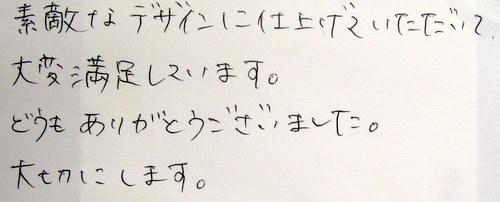 素敵なデザインに仕上げていただいて、
大変満足しています。
どうもありがとうございました。
大切にします。